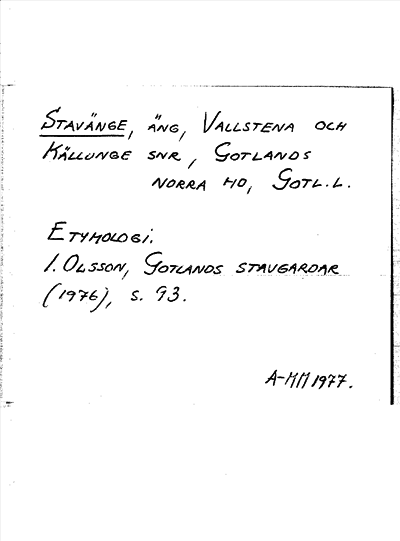 STAVÄNGE, ÄNG, VALLSTENA OCH
KÄLLUNGE SNR, GOTLANDS
NORRA HD, GOTL.L.
ETYMOLOGI:
I. OLSSON, GOTLANDS STAVGARDAR
(1976), S. 93.
A-MM 1977.